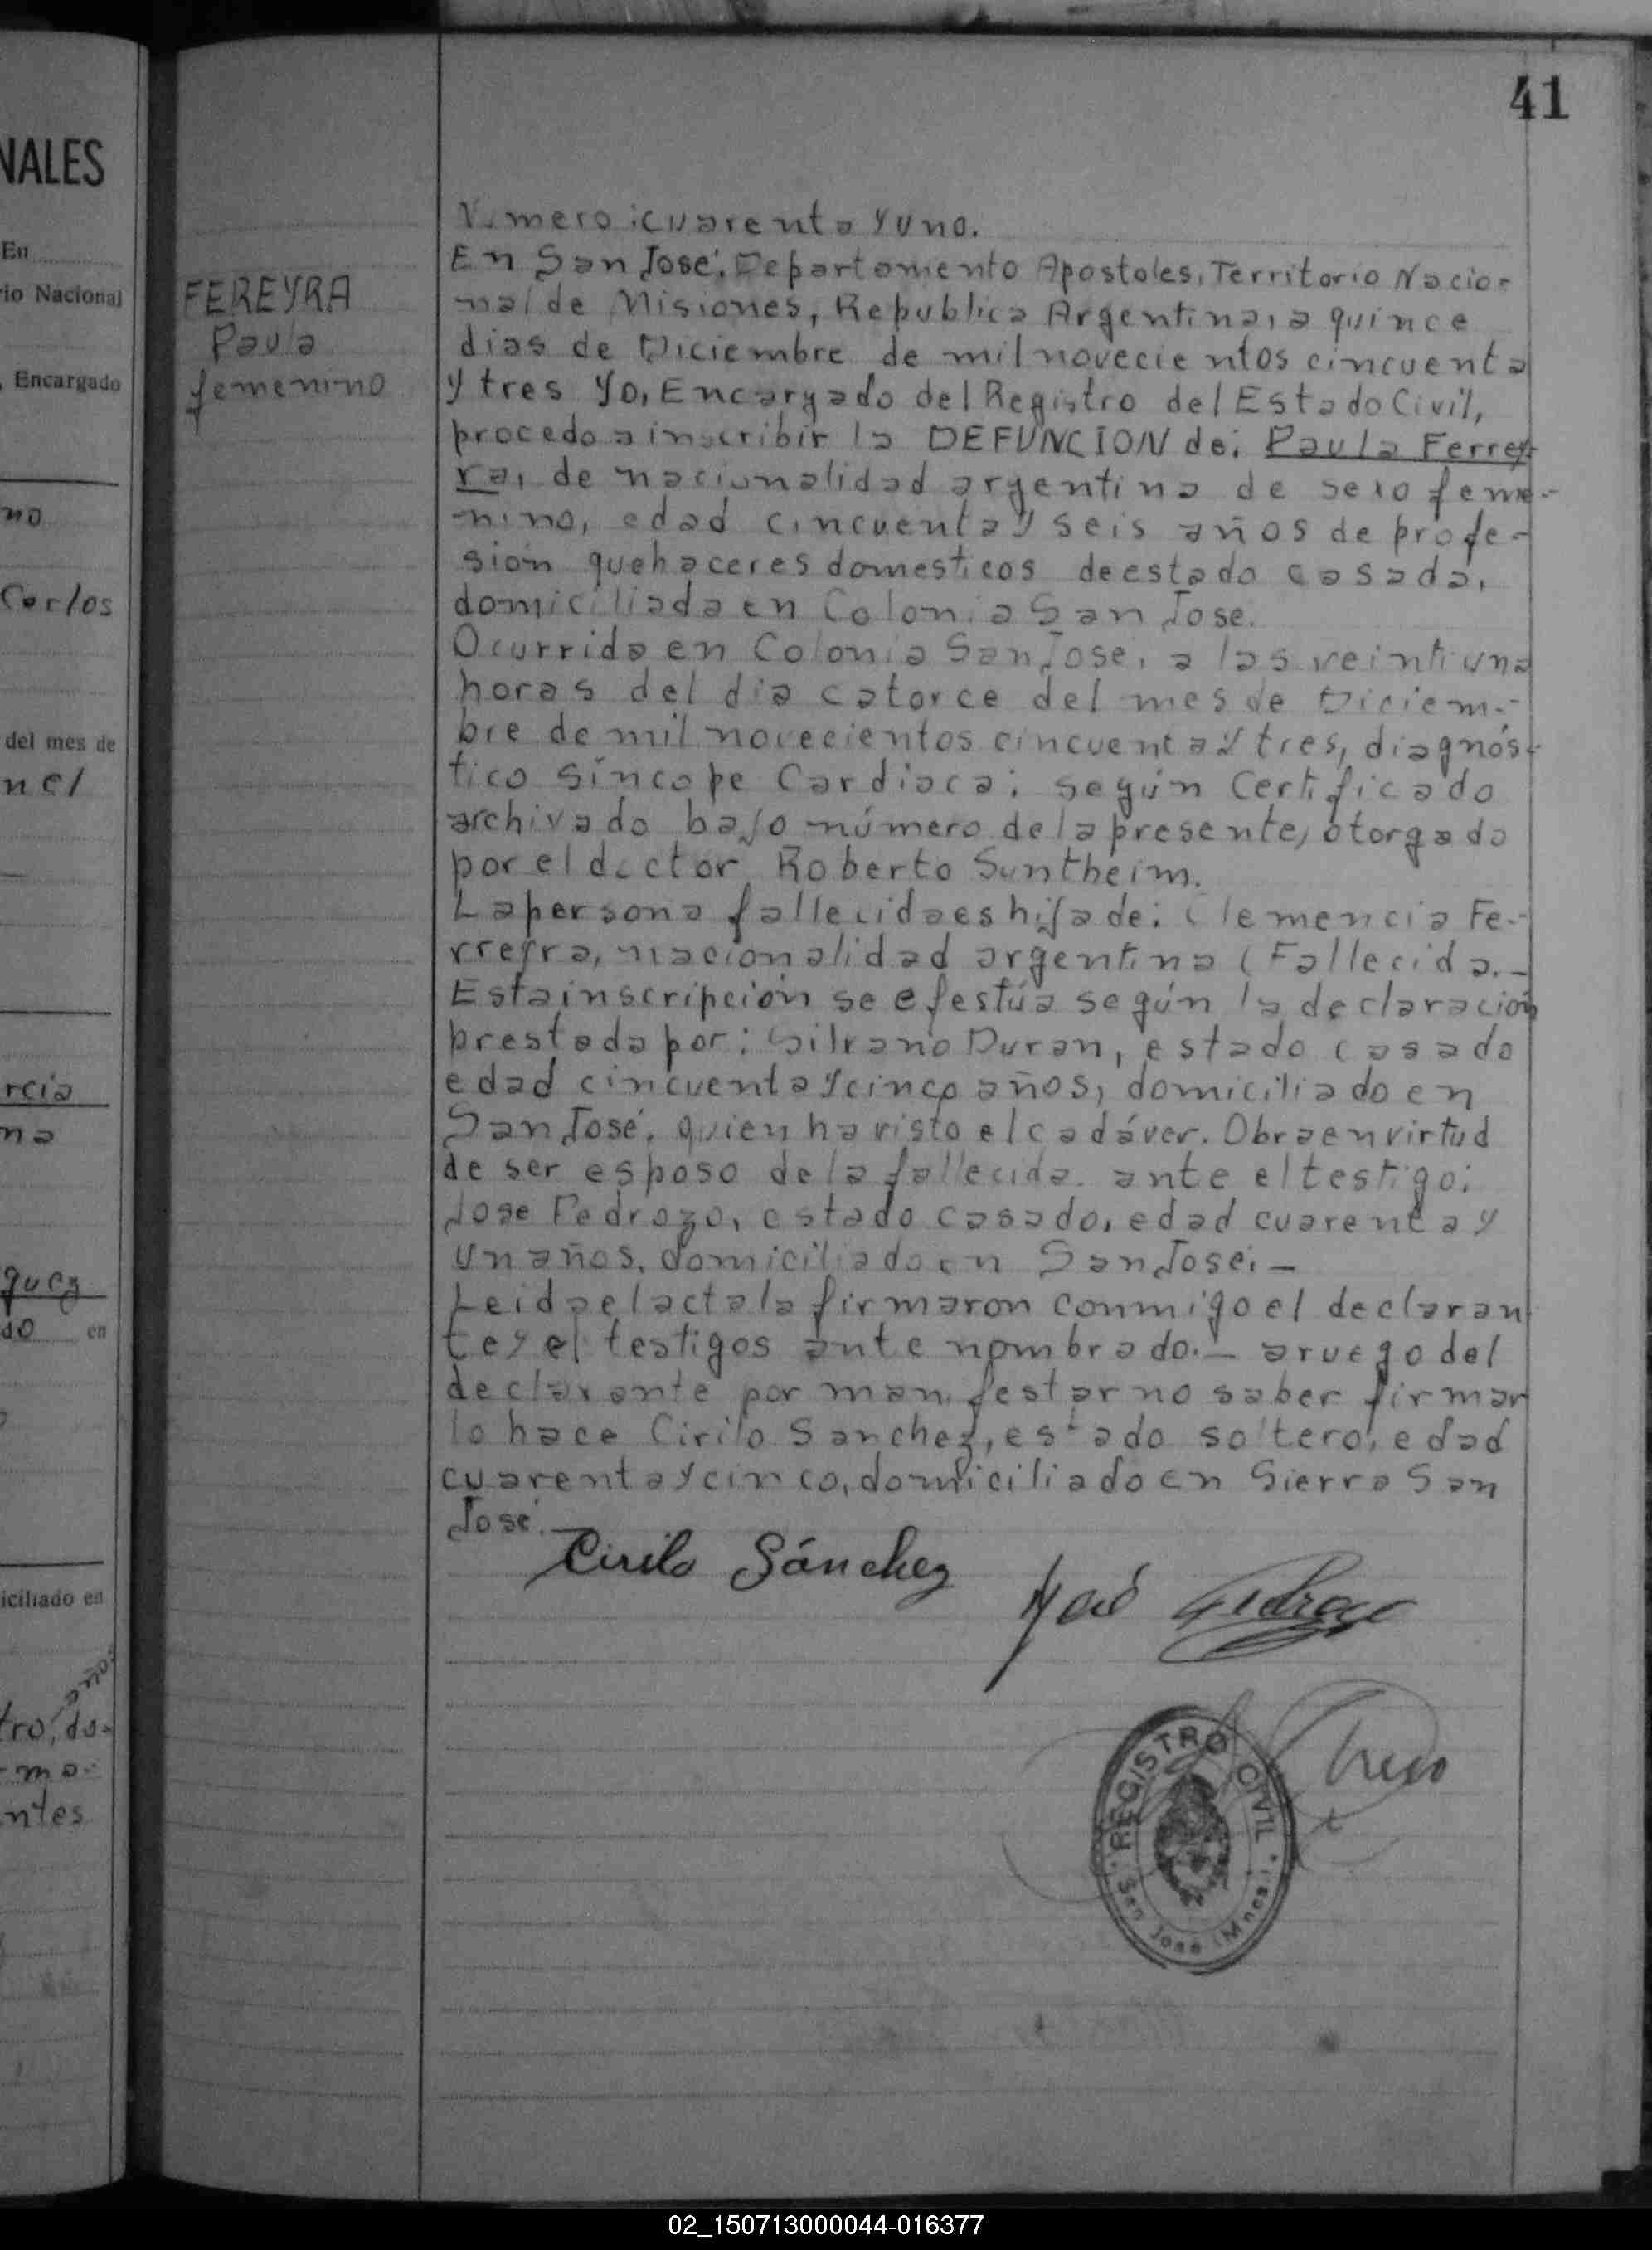 41
NALES
En
rio Nacional
, Encargado
no
Carlos
del mes de
nel
rcia
na
guez
do en
iciliado en
años
tro, do-
ma-
ntes
FEREYRA
Paula
femenino
Número: cuarenta y uno.
En San José, Departamento Apostoles, Territorio Nacio-
nal de Misiones, Republica Argentina, a quince
dias de Diciembre de mil novecientos cincuenta
y tres Yo, Encargado del Registro del Estado Civil,
procedo a inscribir la DEFUNCION de: Paula Ferrey-
ra, de nacionalidad argentina de sexo feme-
nino, edad cincuenta y seis años de profe-
sión quehaceres domesticos de estado casada,
domiciliada en Colonia San Jose.
Ocurrida en Colonia San Jose, a las veintiuna
horas del dia catorce del mes de Diciem-
bre de mil novecientos cincuenta y tres, diagnós-
tico síncope Cardiaca; según Certificado
archivado bajo número de la presente, otorgado
por el doctor Roberto Suntheim.
La persona fallecida es hija de: Clemencia Fe-
rreyra, nacionalidad argentina (Fallecida.-
Esta inscripción se efestúa según la declaración
prestada por: Silvano Duran, estado casado
edad cincuenta y cinco años, domiciliado en
San José, quien ha visto el cadáver. Obra en virtud
de ser esposo de la fallecida. ante el testigo:
Jose Pedrozo, estado casado, edad cuarenta y
un años, domiciliado en San José.-
Leida el acta la firmaron conmigo el declaran
te y el testigos ante nombrado.- a ruego del
declarante por manifestar no saber firmar
lo hace Cirilo Sanchez, estado soltero, edad
cuarenta y cinco, domiciliado en Sierra San
José.
Cirilo Sánchez
José Pedrozo
REGISTRO CIVIL
San Jose (Mnes.)
02_150713000044-016377